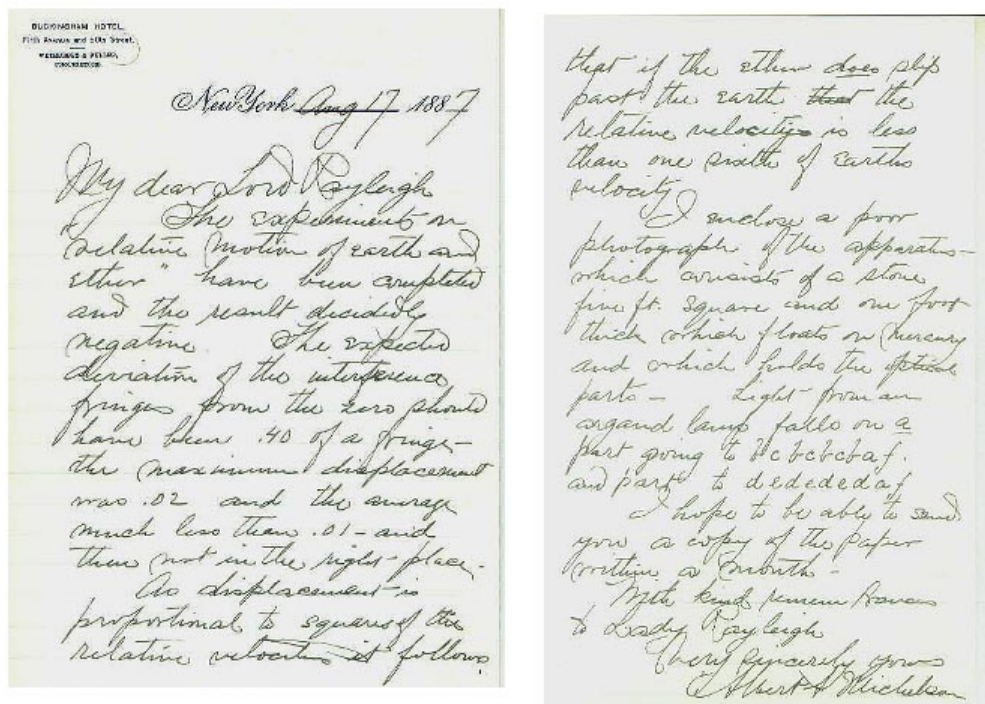 BUCKINGHAM HOTEL,
Fifth Avenue and 50th Street,
WETHERBEE & FULLER,
PROPRIETORS.
New York Aug 17 1887
My dear Lord Rayleigh
The experiments on
"relative motion of earth and
ether" have been completed
and the result decidedly
negative. The expected
deviation of the interference
fringes from the zero should
have been .40 of a fringe –
the maximum displacement
was .02 and the average
much less than .01 – and
then not in the right place.
As displacement is
proportional to squares of the
relative velocities it follows
that if the ether does slip
past the earth that the
relative velocity is less
than one sixth of earths
velocity.
I enclose a poor
photograph of the apparatus –
which consists of a stone
five ft. square and one foot
thick which floats on mercury
and which holds the optical
parts – Light from an
argand lamp falls on a
part going to bcbcbcbaf.
and part to dedededaf
I hope to be able to send
you a copy of the paper
within a month –
With kind remembrances
to Lady Rayleigh
Very sincerely yours
Albert A Michelson